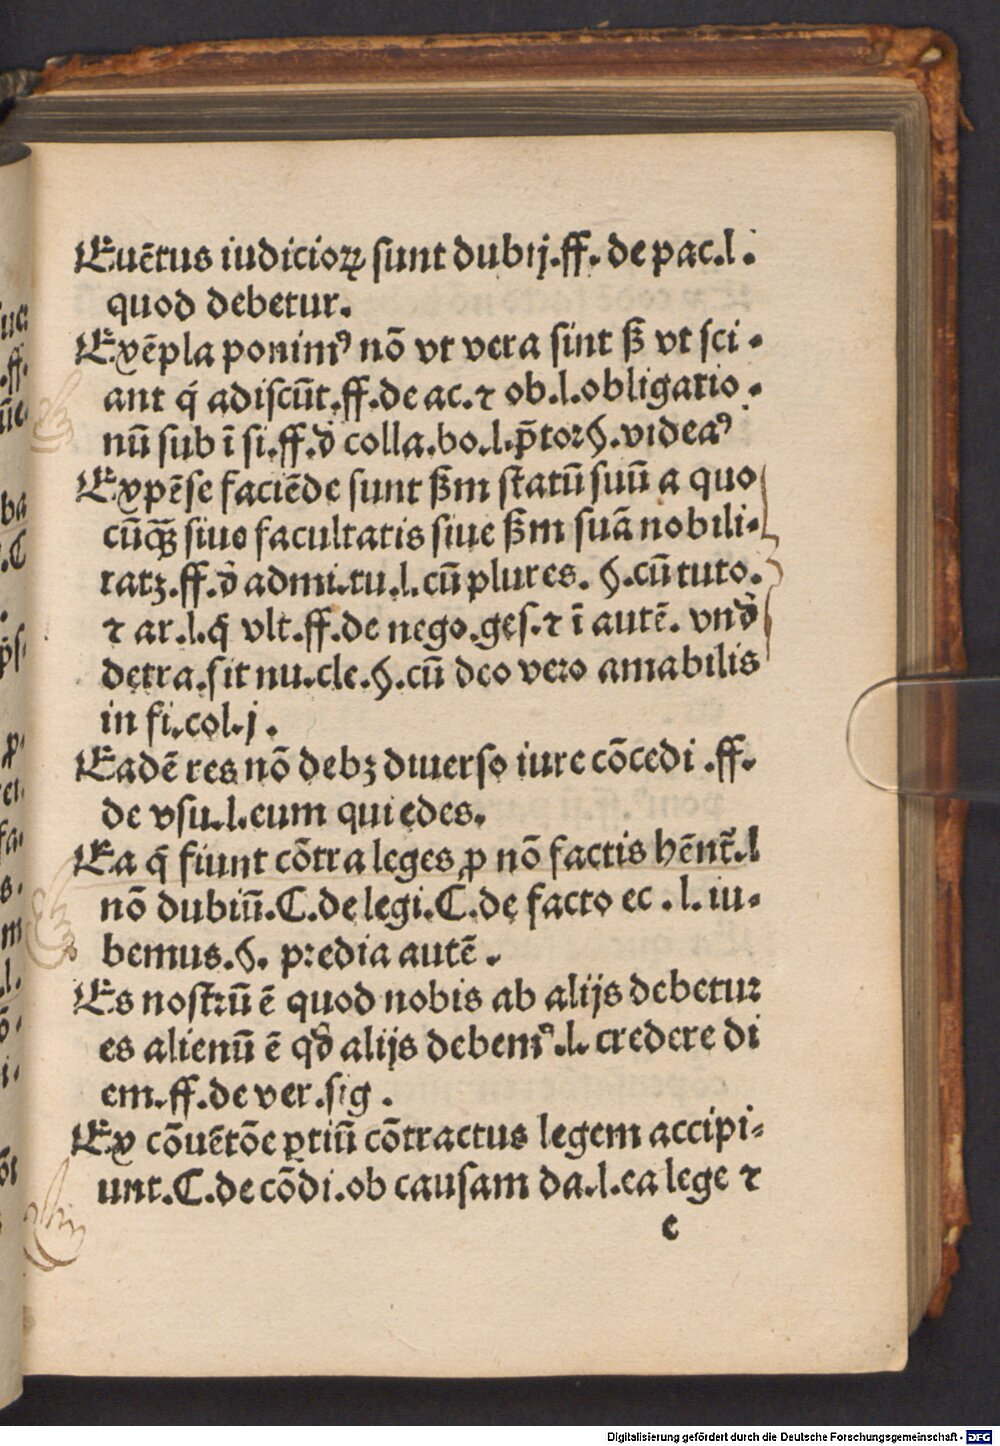 Euētus iudicioꝝ sunt dubij.ff. de pac.l.
quod debetur.
Exēpla ponimꝰ nō vt vera sint ß vt sci-
ant q̇ adiscūt.ff.de ac.⁊ ob.l.obligatio-
nū sub ī si.ff.ď colla.bo.l.p̄tor§.videaꝰ
Expēse faciēde sunt ßm statū suū a quo
cūqꝫ siue facultatis siue ßm suā nobili-
tatꝫ.ff.ď admi.tu.l.cū plures. §.cū tuto.
⁊ ar.l.q̇ vlt.ff.de nego.ges.⁊ ī autē. vnď
detra.sit nu.cle.§.cū deo vero amabilis
in fi.col.j.
Eadē res nō debꝫ diuerso iure cōcedi .ff.
de vsu.l.eum qui edes.
Ea q̇ fiunt cōtra leges ꝓ nō factis hēnt̄.l
nō dubiū.C.de legi.C.de facto ec .l. iu-
bemus.§. predia autē.
Es nostrū ē quod nobis ab alijs debetur
es alienū ē qď alijs debemꝰ.l. credere di
em.ff.de ver.sig .
Ex cōuētōe ꝑtiū cōtractus legem accipi-
unt.C.de cōdi.ob causam da.l.ea lege ⁊
e
Digitalisierung gefördert durch die Deutsche Forschungsgemeinschaft - DFG